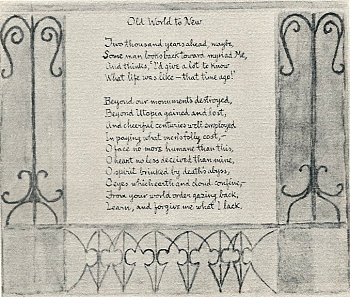 Old World to New
Two thousand years ahead, maybe,
Some man looks back toward myriad Me,
And thinks, "I'd give a lot to know
What life was like – that time ago!"
Beyond our monuments destroyed,
Beyond Utopia gained and lost,
And cheerful centuries well employed
In paying what men's folly cost, –
O face no more humane than this,
O heart no less deceived than mine,
O spirit brinked by death's abyss,
O eyes which earth and cloud confine,–
From your world order gazing back,
Learn, and forgive me what I lack.